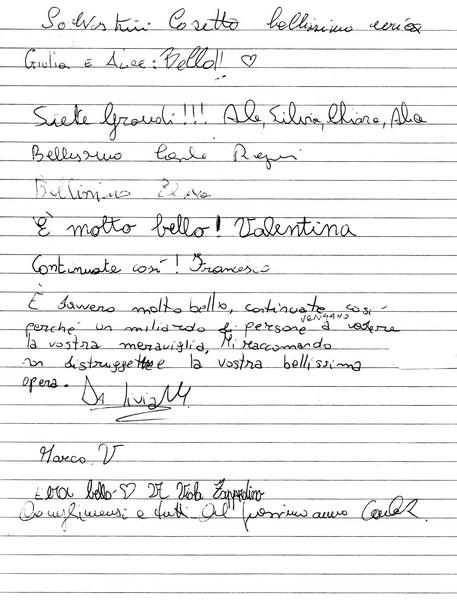 bellissimo
GIULIA E ALICE: Bello!! ♡
Siete Grandi!!! Ale, Silvia, Chiara, Alice
Bellissimo Carla
Bellissimo Elena
È molto bello! Valentina
Continuate così! Francesco
È davvero molto bello, continuate così
perché un miliardo di persone VENGANO a vedere
la vostra meraviglia, Mi raccomando
non distruggete la vostra bellissima
opera. Da Livia M.
Marco V
Era bello ♡ Viola
Complimenti a tutti Al prossimo anno